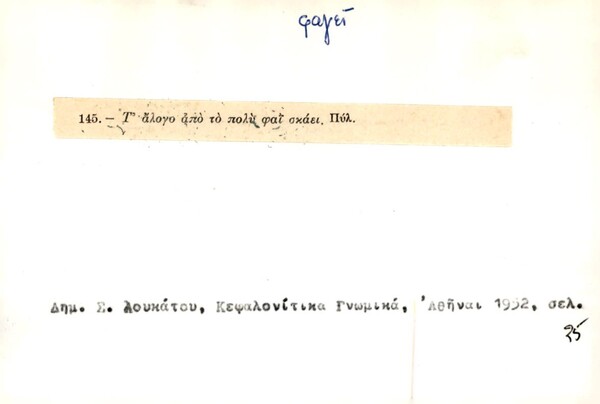 φαγεῖ
145. — Τ' ἄλογο ἀπὸ τὸ πολὺ φαῒ σκάει. Πύλ.
Δημ. Σ. Λουκάτου, Κεφαλονίτικα Γνωμικά, Ἀθῆναι 1952, σελ.
25